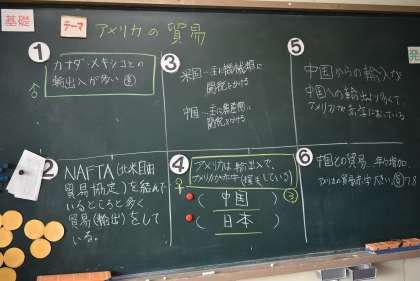 基礎
テーマ アメリカの貿易
発
①
カナダ・メキシコとの
輸出入が多い
②
NAFTA(北米自由
貿易協定)を結んで
いるところと多く
貿易(輸出)をして
いる。
③
米国→主に機械類に
関税をかける
中国→主に農産物に
関税をかける
④
アメリカは輸出入で、
アメリカが赤字(損をしている)
(中国)③
(日本)
⑤
中国からの輸入が
中国への輸出より多くて、
アメリカが赤字になっている
⑥
中国との貿易 年々増加
アメリカの貿易赤字 大きい